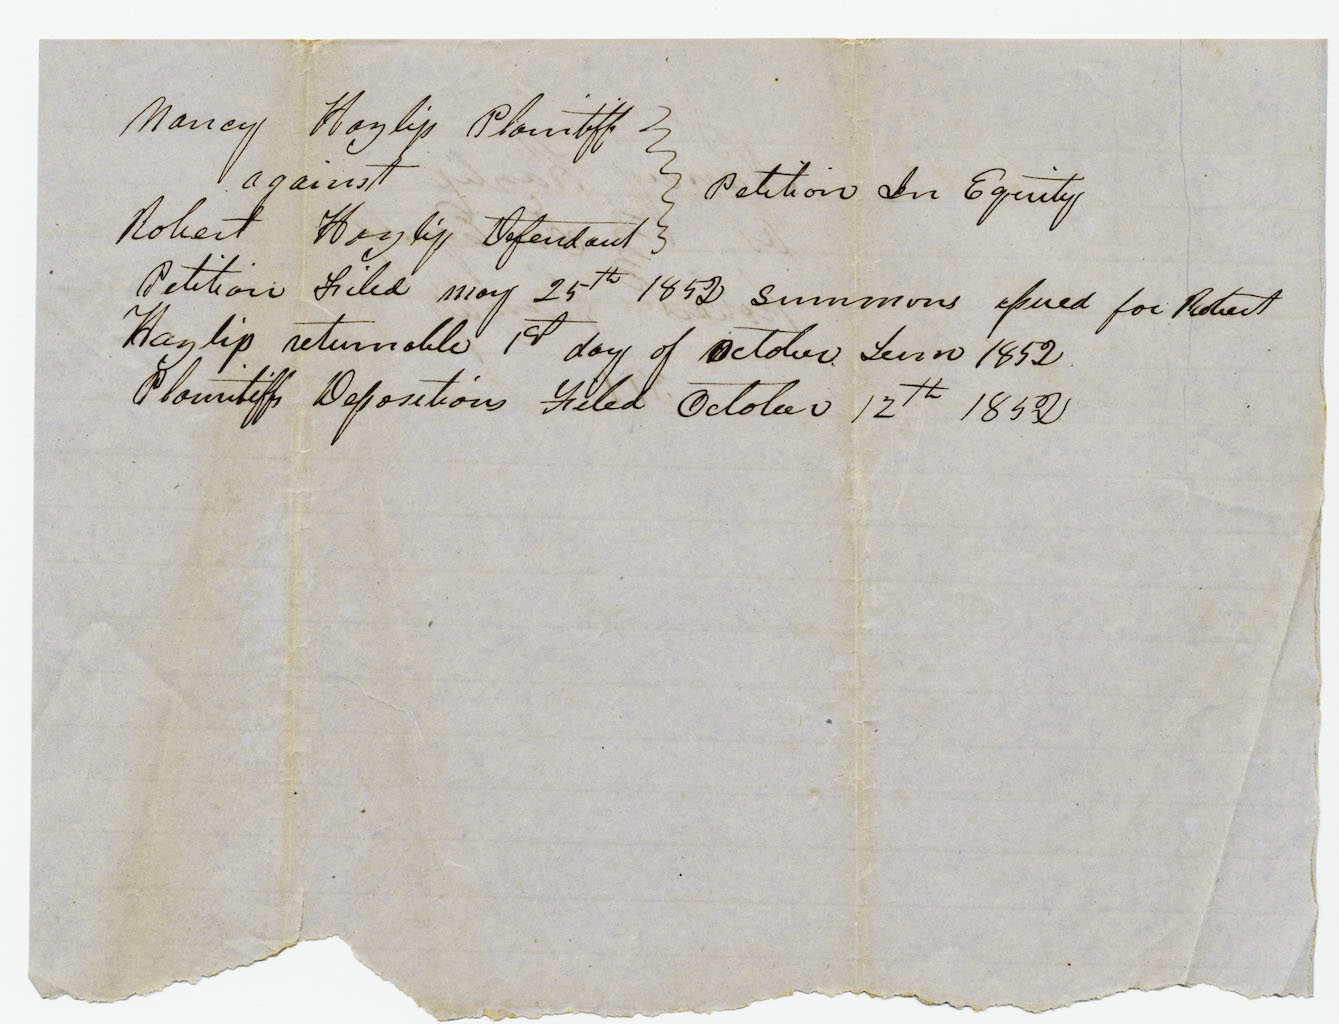 Nancy Hazlip Plaintiff
against
Petition In Equity
Robert Hazlip Defendant
Petition Filed may 25th 1852 summons issued for Robert
Hazlip returnable 1st day of October Term 1852
Plaintiffs Depositions Filed October 12th 1852